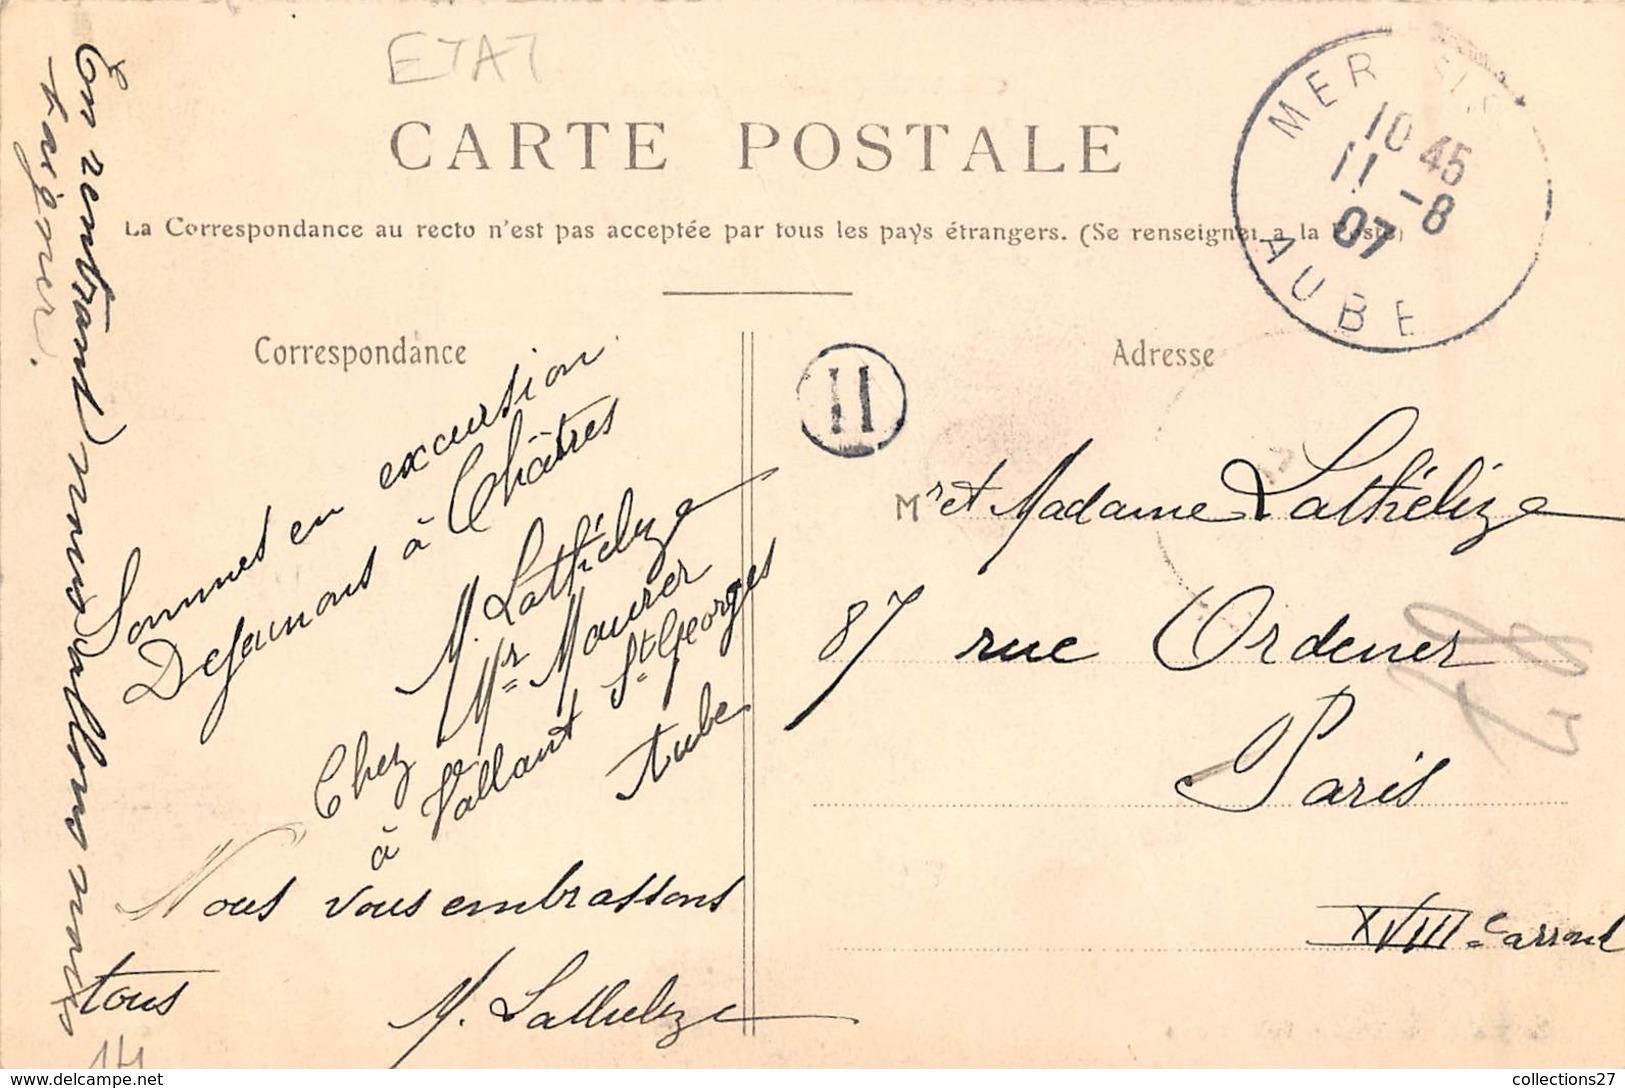 ETAT
CARTE POSTALE
La Correspondance au recto n'est pas acceptée par tous les pays étrangers. (Se renseigner a la Poste)
MER
10 45
11 -8
07
AUBE
Correspondance
Sommes en excursion
Dejeunons à Châtres
M. Lathélize
Chez Mr Maurer
à Vallant St Georges
Aube
Nous vous embrassons
tous
M. Lathelize
En rentrant nous allons nous
baigner.
14
11
Adresse
Mr et Madame Lathélize
87 rue Ordener
Paris
XVIIIe arrond
collections27